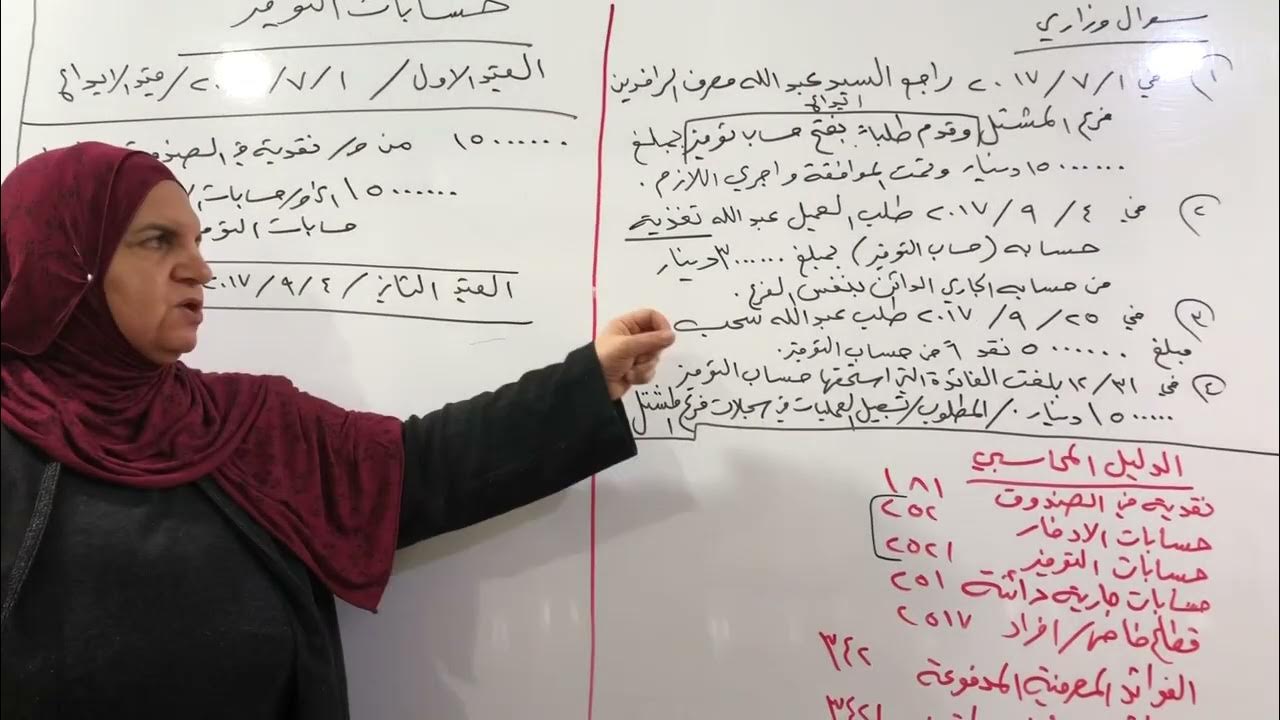 سؤال وزاري
١) في ٢٠١٧/٧/١ راجع السيد عبد الله مصرف الرافدين
ايداع
فرع المشتل وقدم طلباً بفتح حساب توفير بمبلغ
١٥٠٠٠٠٠٠ دينار وتمت الموافقة واجري اللازم .
٢) في ٢٠١٧/٩/٤ طلب العميل عبد الله تغذية
حسابه (حساب التوفير) بمبلغ ٣٠٠٠٠٠٠ دينار
من حسابه الجاري الدائن بنفس الفرع .
٣) في ٢٠١٧/٩/٢٥ طلب عبد الله سحب
مبلغ ٥٠٠٠٠٠٠ نقداً من حساب التوفير.
٤) في ١٢/٣١ بلغت الفائدة التي استحقها حساب التوفير
١٥٠٠٠٠٠ دينار ./ المطلوب/ تسجيل العمليات في سجلات فرع المشتل
الدليل المحاسبي
نقدية في الصندوق ١٨١
حسابات الادخار ٢٥٢
حسابات التوفير ٢٥٢١
حسابات جارية دائنة ٢٥١
قطاع خاص/ افراد ٢٥١٧
الفوائد المصرفية المدفوعة ٣٤٢
٣٤٢١
حسابات التوفير
القيد الاول / ٧/١ / قيد الايداع
١٥٠٠٠٠٠٠ من ح/ نقدية في الصندوق
١٥٠٠٠٠٠٠ الى ح/ حسابات
حسابات التوفير
القيد الثاني / ٢٠١٧/٩/٤